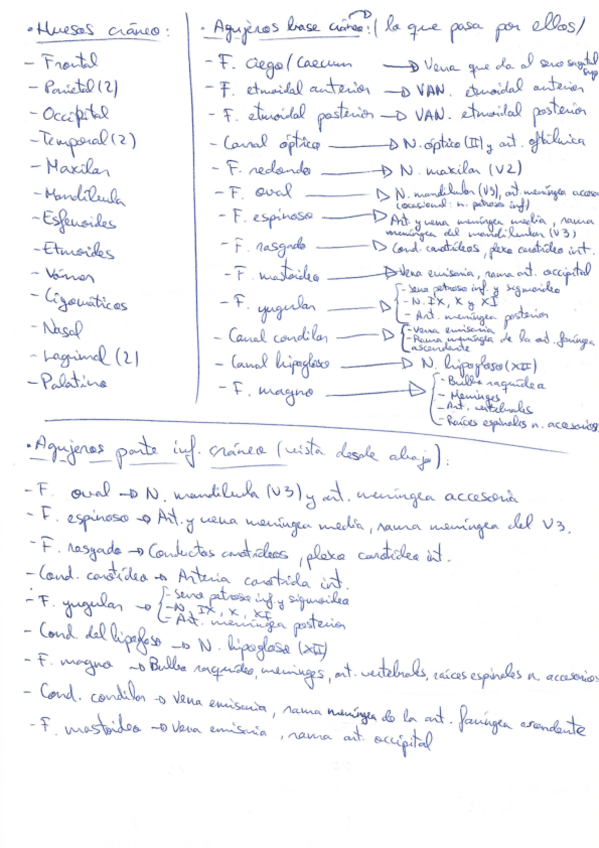 • Huesos cráneo:
- Frontal
- Parietal (2)
- Occipital
- Temporal (2)
- Maxilar
- Mandíbula
- Esfenoides
- Etmoides
- Vómer
- Cigomáticos
- Nasal
- Lagrimal (2)
- Palatino
• Agujeros base cráneo: (lo que pasa por ellos)
- F. ciego/Caecum → Vena que da al seno sagital sup
- F. etmoidal anterior → VAN. etmoidal anterior
- F. etmoidal posterior → VAN. etmoidal posterior
- Canal óptico → N. óptico (II) y art. oftálmica
- F. redondo → N. maxilar (V2)
- F. oval → N. mandibular (V3), art. meníngea acceso
(ocasional: n. petroso inf)
- F. espinoso → Art y vena meníngea media, rama
meníngea del mandibular (V3)
- F. rasgado → Cond. carotídeos, plexo carotídeo int.
- F. mastoideo → Vena emisaria, rama art. occipital
- F. yugular → - Seno petroso inf. y sigmoideo
- N. IX, X y XI
- Art. meníngea posterior
- Canal condilar → - Vena emisaria
- Rama meníngea de la art. faríngea
ascendente
- Canal hipogloso → N. hipogloso (XII)
- F. magno → - Bulbo raquídeo
- Meninges
- Art. vertebrales
- Raíces espinales n. accesorios
• Agujeros parte inf. cráneo (vista desde abajo):
- F. oval → N. mandíbula (V3) y art. meníngea accesoria
- F. espinoso → Art. y vena meníngea media, rama meníngea del V3.
- F. rasgado → Conductos carotídeos, plexo carotídeo int.
- Cond. carotídeo → Arteria carótida int.
- F. yugular → - Seno petroso inf y sigmoidea
- N. IX, X, XI
- Art. meníngea posterior
- Cond del hipogloso → N. hipogloso (XII)
- F. magno → Bulbo raquídeo, meninges, art. vertebrals, raíces espinales n. accesorios
- Cond. condilar → Vena emisaria, rama meníngea de la art. faríngea asendente
- F. mastoideo → Vena emisaria, rama art. occipital